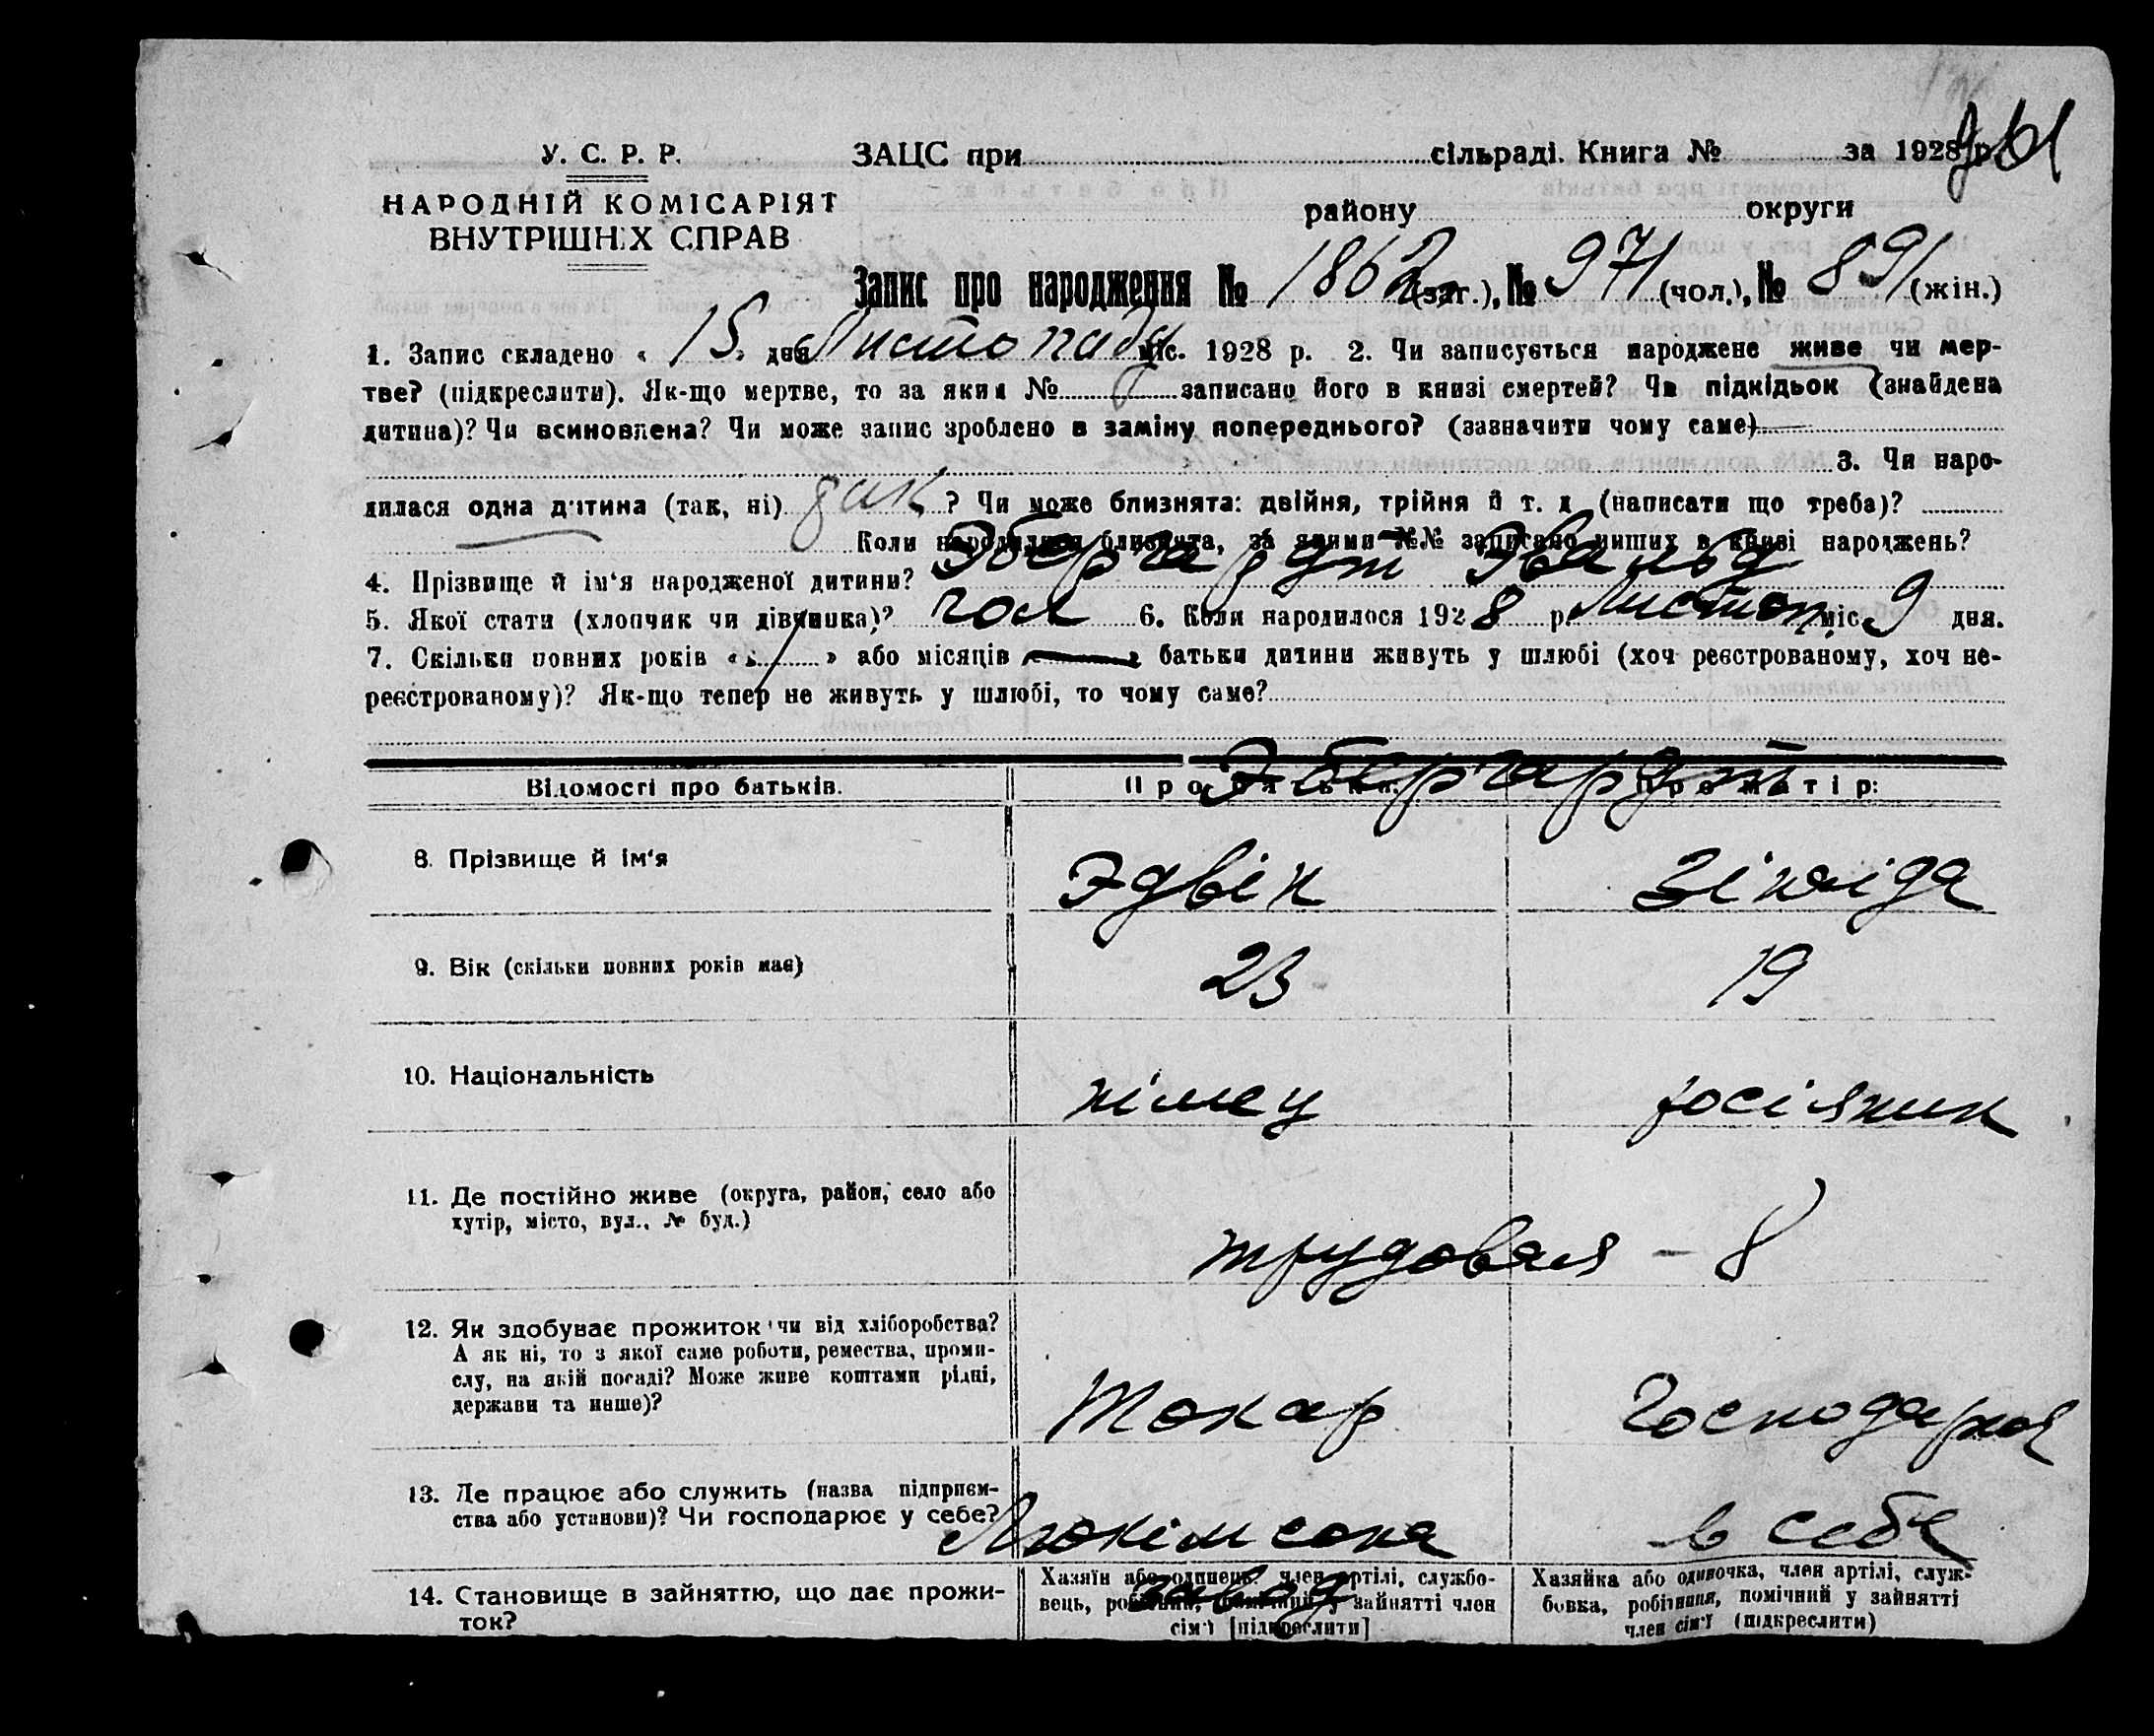 У. С. Р. Р.
НАРОДНІЙ КОМІСАРІЯТ
ВНУТРІШНІХ СПРАВ
ЗАЦС при сільраді. Книга № за 1928 р.
району округи
Запис про народження № 1862 (заг.), № 971 (чол.), № 891 (жін.)
1. Запис складено « 15 » дня Листопада міс. 1928 р. 2. Чи записується народжене живе чи мер-
тве? (підкреслити). Як-що мертве, то за яким № записано його в книзі смертей? Чи підкідьок (знайдена
дитина)? Чи всиновлена? Чи може запис зроблено в заміну попереднього? (зазначити чому саме)
3. Чи наро-
дилася одна дитина (так, ні) ? Чи може близнята: двійня, трійня й т. д (написати що треба)?
Коли народилися близнята, за якими №№ записано инших в книзі народжень?
4. Прізвище й ім'я народженої дитини? Эбергардт Эвальд
5. Якої стати (хлопчик чи дівчинка)? чол 6. Коли народилося 1928 р. Листоп. міс 9 дня.
7. Скільки повних років « » або місяців « » батьки дитини живуть у шлюбі (хоч реєстрованому, хоч не-
реєстрованому)? Як-що тепер не живуть у шлюбі, то чому саме?
Відомості про батьків. Про батька: Про матір:
Эбергардт
8. Прізвище й ім'я Эдвін Зінаіда
9. Вік (скільки повних років має) 23 19
10. Національність німец росіянин
11. Де постійно живе (округа, район, село або
хутір, місто, вул., № буд.)
трудовая - 8
12. Як здобуває прожиток чи від хліборобства?
А як ні, то з якої саме роботи, ремества, проми-
слу, на якій посаді? Може живе коштами рідні,
держави та инше)?
Токар Господарка
13. Де працює або служить (назва підприєм-
ства або установи)? Чи господарює у себе?
завод в себе
14. Становище в зайняттю, що дає прожи-
ток?
Хазяїн або одинець, член артілі, службо-
вець, робітник, помічний у зайнятті член
сім'ї [підкреслити]
Хазяйка або одиночка, член артілі, служ-
бовка, робітниця, помічний у зайнятті
член сім'ї (підкреслити)